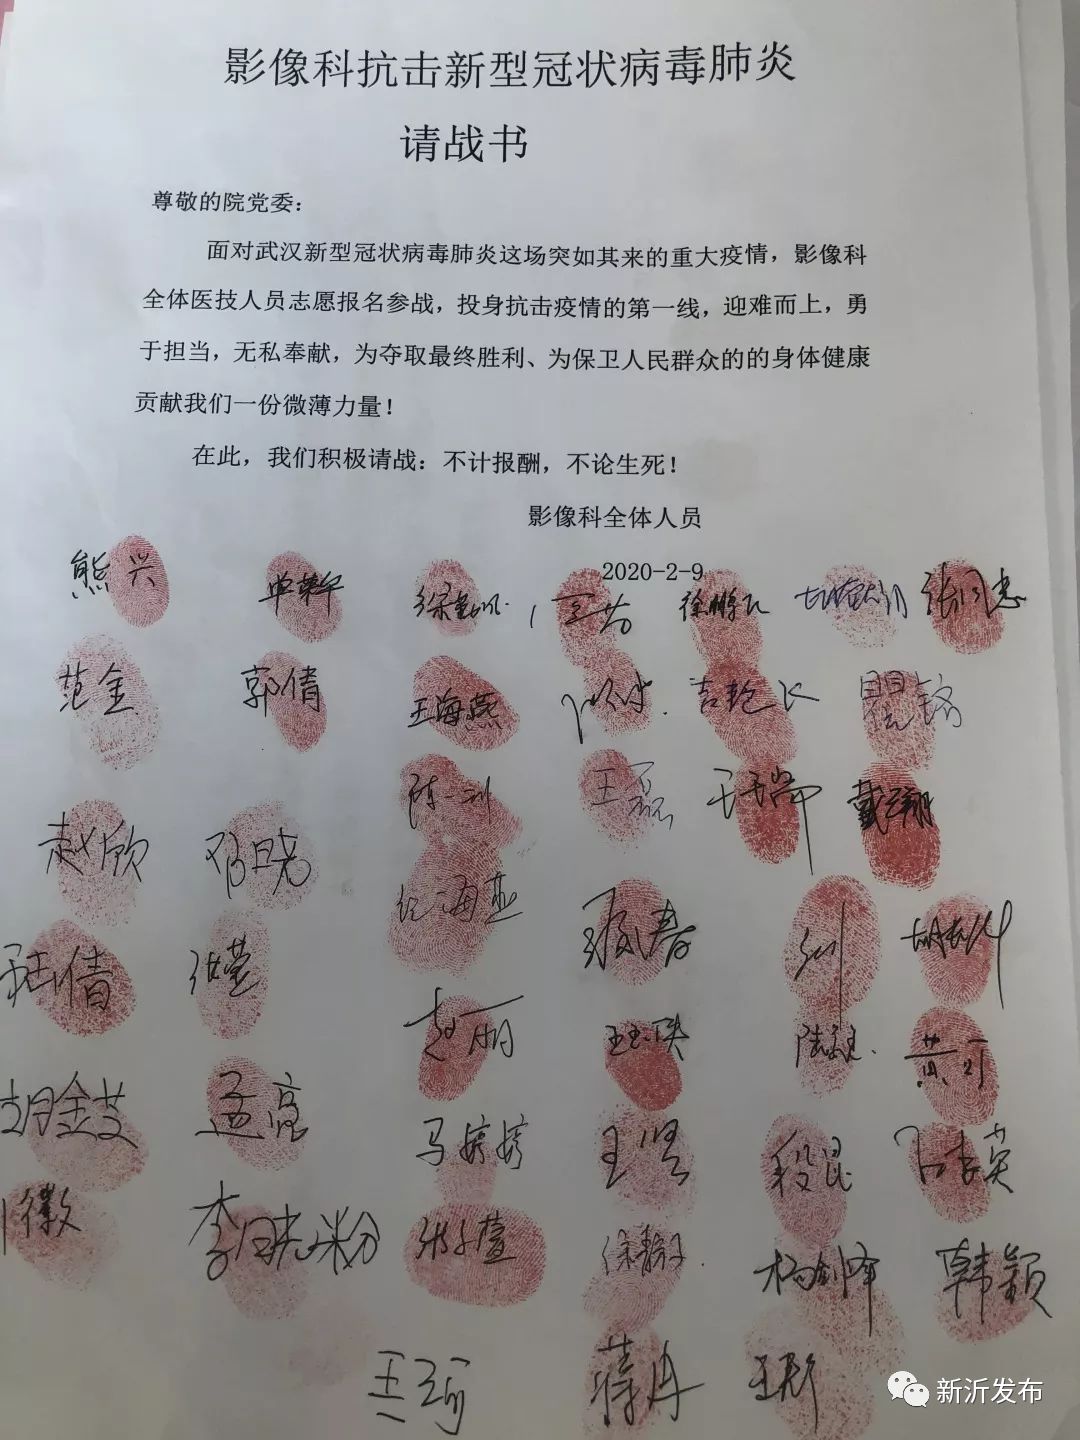 影像科抗击新型冠状病毒肺炎
请战书
尊敬的院党委：
面对武汉新型冠状病毒肺炎这场突如其来的重大疫情，影像科
全体医技人员志愿报名参战，投身抗击疫情的第一线，迎难而上，勇
于担当，无私奉献，为夺取最终胜利、为保卫人民群众的的身体健康
贡献我们一份微薄力量！
在此，我们积极请战：不计报酬，不论生死！
影像科全体人员
2020-2-9
熊兴 王芳 徐鹏飞 张同志
范金 郭倩 王海燕
王磊 王瑞 戴翔
赵欣 邓晓
张莹 张春
赵丽 黄可
胡金艾 孟亮 马婷婷 王坚 段昆
张萱 徐静 杨剑峰 韩颖
蒋丹 王彤
新沂发布